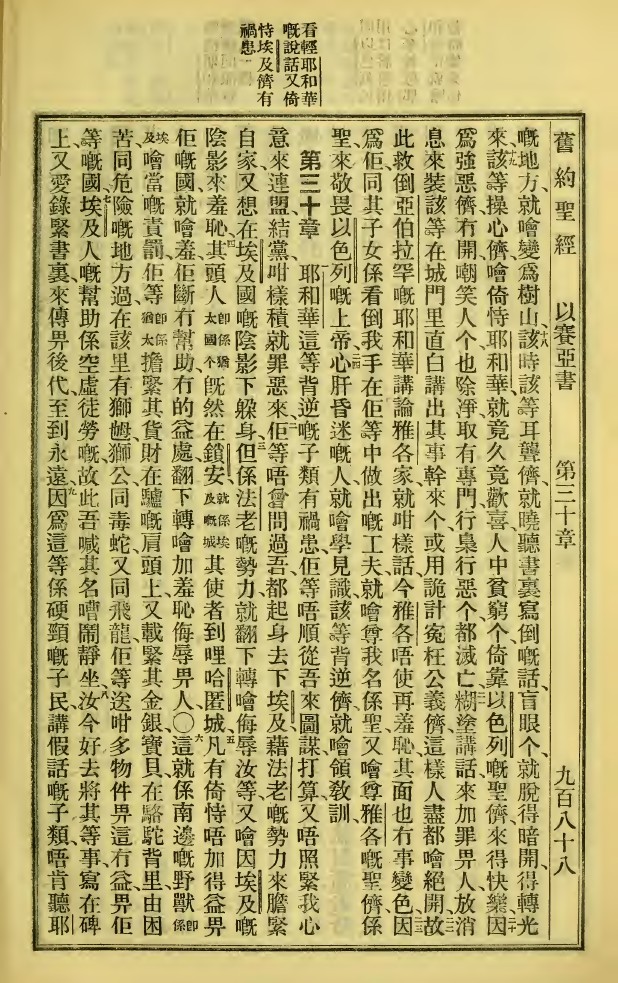 看輕耶和華
嘅說話又倚
恃埃及儕有
禍患
舊約聖經 以賽亞書 第三十章 九百八十八
嘅地方、就噲變爲樹山、十八該時該等耳聾儕、就曉聽書裏寫倒嘅話、盲眼个、就脫得暗開、得轉光
來、十九該等操心儕、噲倚恃耶和華、就竟久竟歡喜、人中貧窮个、倚靠以色列嘅聖儕、來得快樂、二十因
爲強惡儕冇開、嘲笑人个也除凈、取有專門行梟行惡个、都滅亡、二一糊塗講話、來加罪畀人、放消
息來裝該等在城門里直白講出其事幹來个、或用詭計寃枉公義儕、這樣人盡都噲絕開、二二故
此救倒亞伯拉罕嘅耶和華、講論雅各家、就咁樣話、今雅各唔使再羞恥、其面也冇事變色、二三因
爲佢同其子女、係看倒我手在佢等中做出嘅工夫、就噲尊我名係聖、又噲尊雅各嘅聖儕係
聖、來敬畏以色列嘅上帝、二四心肝昏迷嘅人、就噲學見識、該等背逆儕、就噲領敎訓、
第三十章 耶和華話、這等背逆嘅子類有禍患、佢等唔順從吾、來圖謀打算、又唔照緊我心
意、來連盟結黨、咁樣積就罪惡來、二佢等唔曾問過吾、都起身去下埃及、藉法老嘅勢力、來膽緊
自家、又想在埃及國嘅陰影下躱身、三但係法老嘅勢力、就翻下轉噲侮辱汝等、又噲因埃及嘅
陰影來羞恥、四其頭人卽係猶太國个旣然在鎖安、就係埃及嘅城其使者到哩哈匿城、五凡有倚恃唔加得益畀
佢嘅國、就噲羞、佢斷冇幫助、冇的益處、翻下轉噲加羞恥侮辱畀人、〇六這就係南邊嘅野獸卽係
埃及噲當嘅責罰、佢等卽係猶太擔緊其貨財、在驢嘅肩頭上、又載緊其金銀寶貝、在駱駝背里、由困
苦同危險嘅地方過、在該里有獅𡜵獅公、同毒蛇、又同飛龍、佢等送咁多物件、畀這冇益畀佢
等嘅國、七埃及人嘅幫助、係空虛徒勞嘅、故此吾喊其名嘈鬧靜坐、八汝今好去將其等事、寫在碑
上、又愛錄緊書裏、來傳畀後代、至到永遠、九因爲這等係硬頸嘅子民、講假話嘅子類、唔肯聽耶